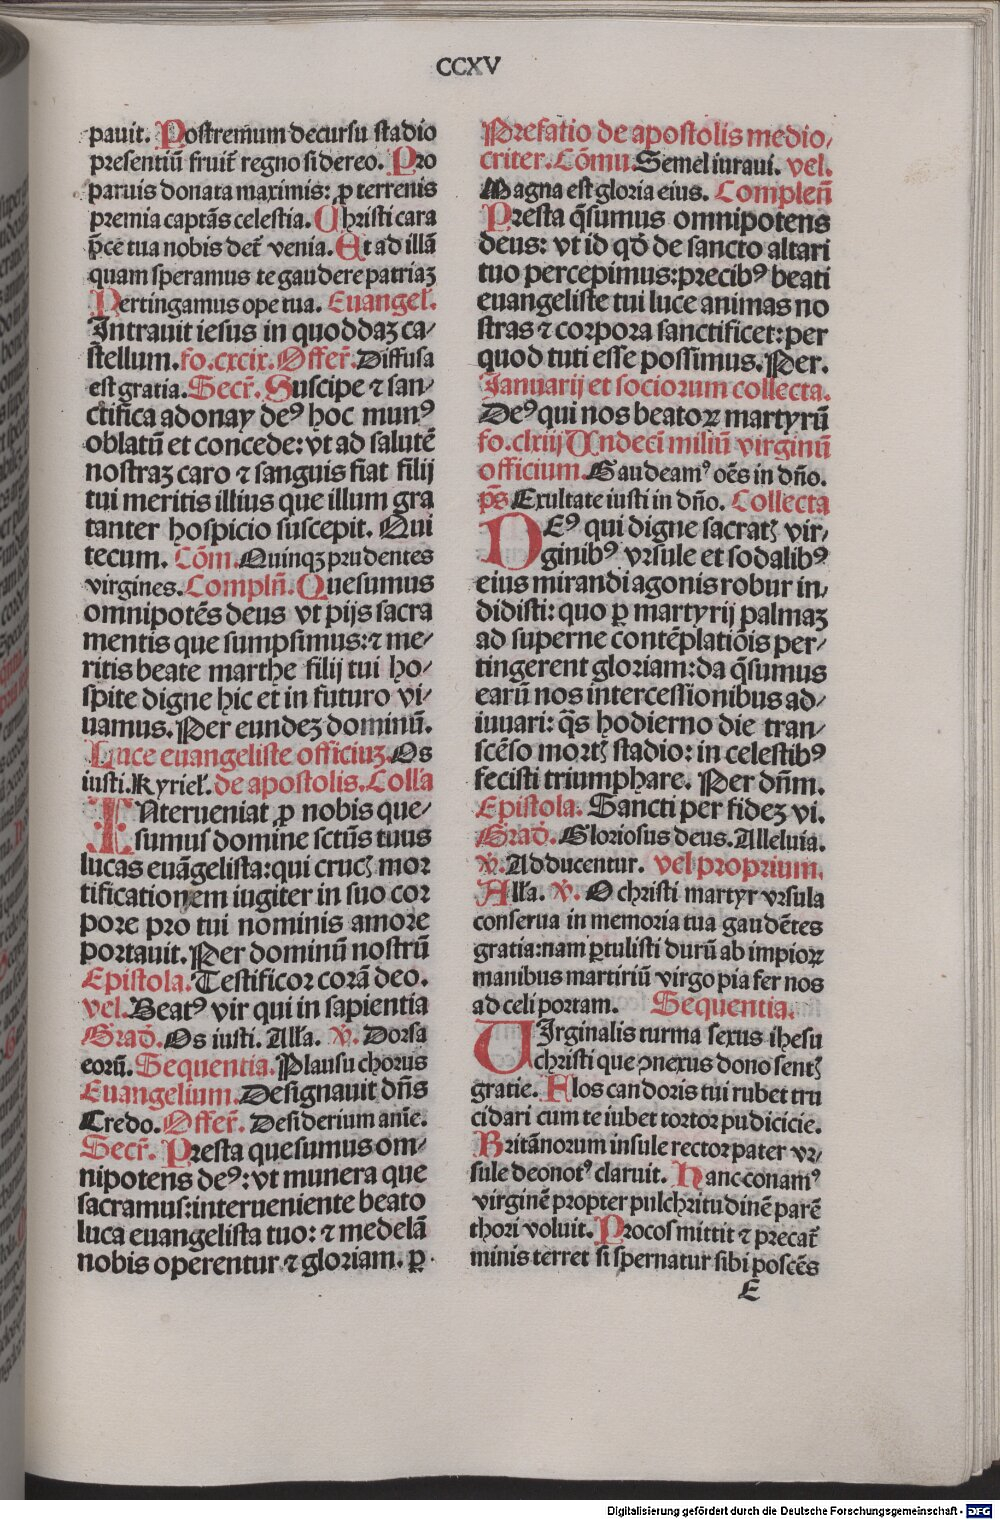 CCXV
pauit. Postremum decursu stadio
presentiū fruit̄ regno sidereo. Pro
paruis donata maximis: ꝑ terrenis
premia captās celestia. Christi cara
p̄ce tua nobis det̄ venia. Et ad illā
quam speramus te gaudere patriaꝫ
Pertingamus ope tua. Euangel̄.
Intrauit iesus in quoddaꝫ ca/
stellum. fo. cxcix. Offer̄. Diffusa
est gratia. Secr̄. Suscipe ⁊ san/
ctifica adonay deꝰ hoc munꝰ
oblatū et concede: vt ad salutē
nostraꝫ caro ⁊ sanguis fiat filij
tui meritis illius que illum gra
tanter hospicio suscepit. Qui
tecum. Cōm. Quinqꝫ prudentes
virgines. Compln̄. Quesumus
omnipotēs deus vt pijs sacra
mentis que sumpsimus: ⁊ me/
ritis beate marthe filij tui ho/
spite digne hic et in futuro vi/
uamus. Per eundeꝫ dominū.
Luce euangeliste officiuꝫ. Os
iusti. Kyriel̄. de apostolis. Coll̄a
INterueniat ꝓ nobis que/
sumus domine sctūs tuus
lucas euāgelista: qui crucꝭ mor
tificationem iugiter in suo cor
pore pro tui nominis amore
portauit. Per dominū nostrū
Epistola. Testificor corā deo.
vel. Beatꝰ vir qui in sapientia
Grad̄. Os iusti. All̄a. ℣. Dorsa
eorū. Sequentia. Plausu chorus
Euangelium. Designauit dn̄s
Credo. Offer̄. Desiderium anīe.
Secr̄. Presta quesumus om/
nipotens deꝰ: vt munera que
sacramus: interueniente beato
luca euangelista tuo: ⁊ medelā
nobis operentur ⁊ gloriam. ꝑ.
Prefatio de apostolis medio,
criter. Cōmu. Semel iuraui. vel.
Magna est gloria eius. Complen̄
Presta q̄sumus omnipotens
deus: vt id qd̄ de sancto altari
tuo percepimus: precibꝰ beati
euangeliste tui luce animas no
stras ⁊ corpora sanctificet: per
quod tuti esse possimus. Per.
Januarij et sociorum collecta.
Deꝰ qui nos beatoꝝ martyrū
fo. clxiij Undecī miliū virginū
officium. Gaudeamꝰ oēs in dn̄o.
p̄s Exultate iusti in dn̄o. Collecta
DEꝰ qui digne sacratꝭ vir/
ginibꝰ vrsule et sodalibꝰ
eius mirandi agonis robur in/
didisti: quo ꝑ martyrij palmaꝫ
ad superne contēplatiōis per/
tingerent gloriam: da q̄sumus
earū nos intercessionibus ad/
iuuari: q̄s hodierno die tran/
scēso mortꝭ stadio: in celestibꝰ
fecisti triumphare. Per dn̄m.
Epistola. Sancti per fideꝫ vi.
Grad̄. Gloriosus deus. Alleluia.
℣. Adducentur. vel proprium.
All̄a. ℣. O christi martyr vrsula
conserua in memoria tua gaudētes
gratia: nam ꝑtulisti durū ab impioꝝ
manibus martiriū virgo pia fer nos
ad celi portam. Sequentia.
VIrginalis turma sexus ihesu
christi que ↄnexus dono sentꝭ
gratie. Flos candoris tui rubet tru
cidari cum te iubet tortor pudicicie.
Britānorum insule rector pater vr/
sule deonotꝰ claruit. Hanc conamꝰ
virginē propter pulchritudinē parē
thori voluit. Procos mittit ⁊ precat̄
minis terret si spernatur sibi poscēs
E
Digitalisierung gefördert durch die Deutsche Forschungsgemeinschaft - DFG